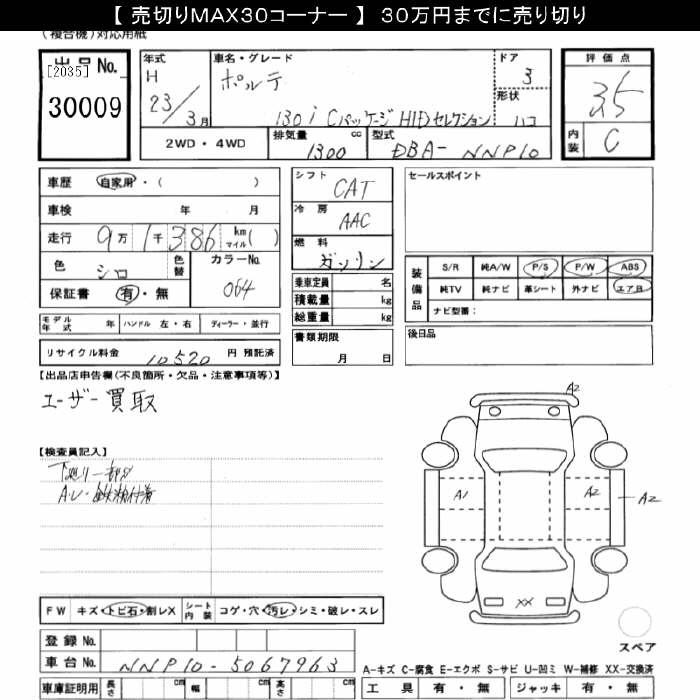 【 売切りMAX30コーナー 】 30万円までに売り切り
(複合機)対応用紙
出品No.
[2035]
30009
年式
H
23/3月
車名・グレード
ポルテ
130i Cパッケージ HIDセレクション
ドア
3
形状
ハコ
2WD・4WD
排気量 cc
1300
型式
DBA-NNP10
評価点
3.5
内装
C
車歴 自家用・( )
車検 年 月
走行 9万1千386 km マイル( )
色 シロ
色替
カラーNo.
064
保証書 有・無
モデル年式 年 ハンドル 左・右 ディーラー・並行
リサイクル料金 10520 円 預託済
シフト
CAT
冷房
AAC
燃料
ガソリン
乗車定員 名
積載量 kg
総重量 kg
書類期限
月 日
セールスポイント
装備品
S/R 純A/W P/S P/W ABS
純TV 純ナビ 革シート 外ナビ エアB
ナビ型番:
後日品
【出品店申告欄(不良箇所・欠品・注意事項等)】
ユーザー買取
【検査員記入】
下廻り一部サ
A2
A1
A2
A2
XX
スペア
FW キズ・トビ石・割レX
シート内装 コゲ・穴・汚レ・シミ・破レ・スレ
登録No.
車台No. NNP10-5067963
車庫証明用 長さ cm 幅 cm 高さ cm
A-キズ C-腐食 E-エクボ S-サビ U-凹ミ W-補修 XX-交換済
工具 有・無 ジャッキ 有・無